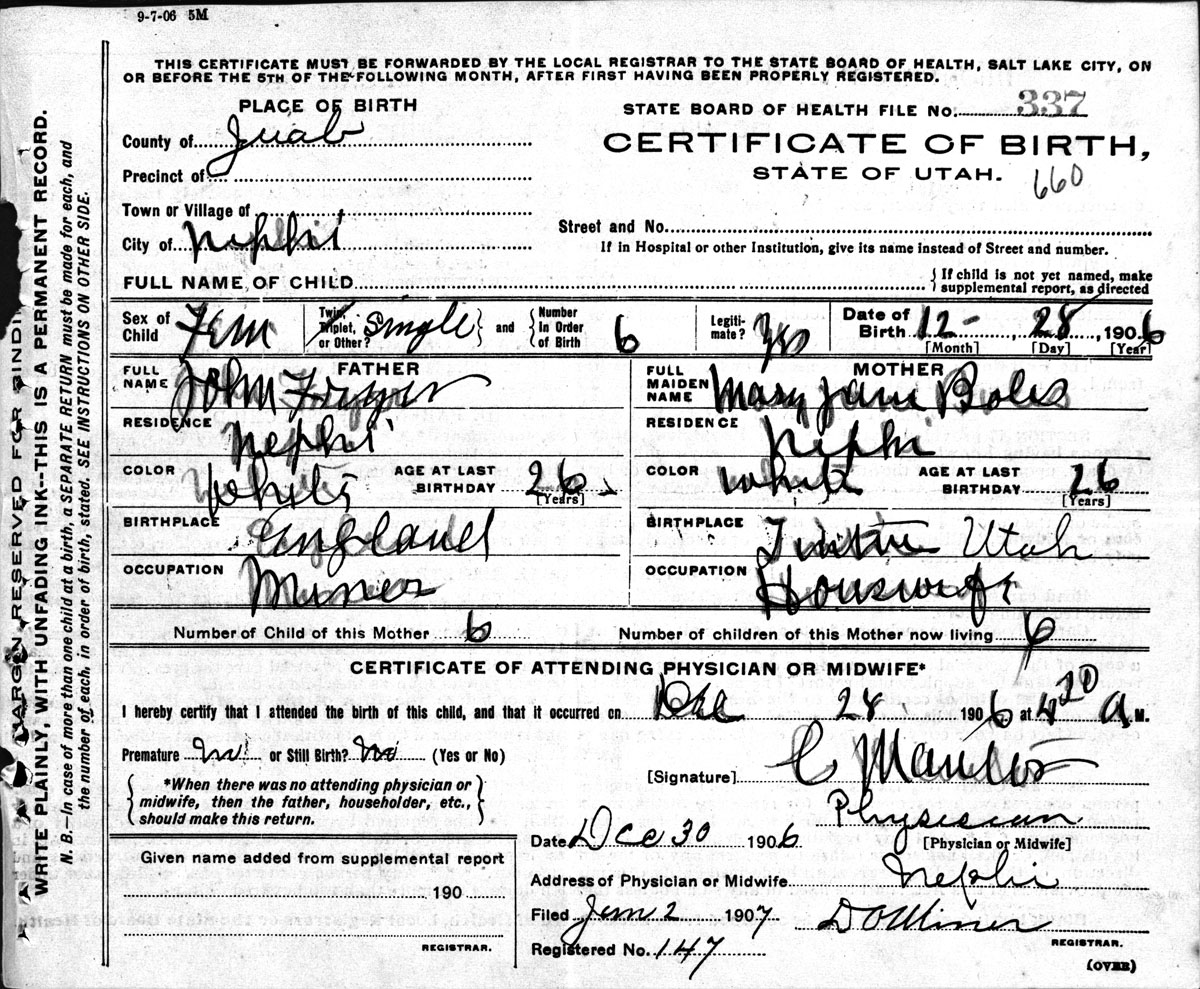 9-7-06 5M
THIS CERTIFICATE MUST BE FORWARDED BY THE LOCAL REGISTRAR TO THE STATE BOARD OF HEALTH, SALT LAKE CITY, ON
OR BEFORE THE 5TH OF THE FOLLOWING MONTH, AFTER FIRST HAVING BEEN PROPERLY REGISTERED.
PLACE OF BIRTH
STATE BOARD OF HEALTH FILE No. 337
County of Juab
CERTIFICATE OF BIRTH,
Precinct of
STATE OF UTAH. 660
Town or Village of
Street and No.
City of Nephi
If in Hospital or other Institution, give its name instead of Street and number.
FULL NAME OF CHILD
{ If child is not yet named, make
supplemental report, as directed
Sex of Child Fem
Twin, Triplet, or Other? Single } and { Number In Order of Birth 6
Legitimate? Yes
Date of Birth 12 - 28, 1906
[Month] [Day] [Year]
FATHER
FULL NAME John
RESIDENCE Nephi
COLOR White AGE AT LAST BIRTHDAY 26 [Years]
BIRTHPLACE England
OCCUPATION Miner
MOTHER
FULL MAIDEN NAME Mary Jane
RESIDENCE Nephi
COLOR White AGE AT LAST BIRTHDAY 26 [Years]
BIRTHPLACE Utah
OCCUPATION Housewife
Number of Child of this Mother 6 Number of children of this Mother now living 6
CERTIFICATE OF ATTENDING PHYSICIAN OR MIDWIFE*
I hereby certify that I attended the birth of this child, and that it occurred on Dec 28 1906 at 4 20 A M.
Premature No or Still Birth? No (Yes or No)
[Signature]
{ *When there was no attending physician or
midwife, then the father, householder, etc.,
should make this return. }
Physician
[Physician or Midwife]
Date Dec 30 1906
Given name added from supplemental report
190
REGISTRAR.
Address of Physician or Midwife Nephi
Filed Jan 2 1907
REGISTRAR.
Registered No. 147
(OVER)
MARGIN RESERVED FOR BINDING
WRITE PLAINLY, WITH UNFADING INK--THIS IS A PERMANENT RECORD.
N. B.—In case of more than one child at a birth, a SEPARATE RETURN must be made for each, and
the number of each, in order of birth, stated. SEE INSTRUCTIONS ON OTHER SIDE.